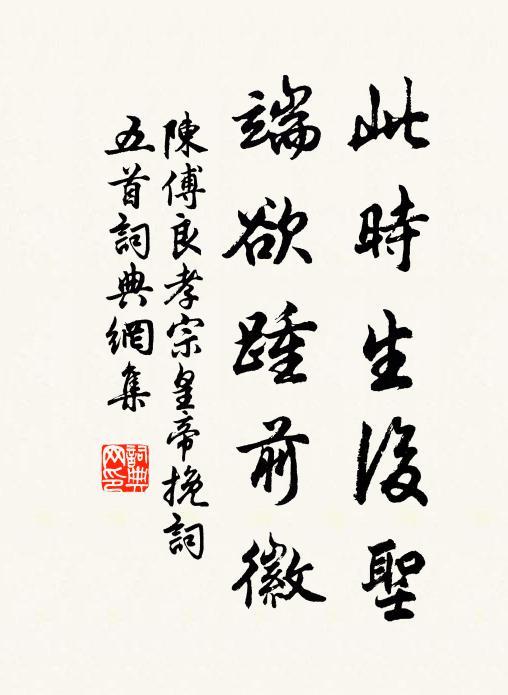 此時生後聖
端欲踵前徽
陳傅良孝宗皇帝挽詞
五首詞典網集
詞典
网印